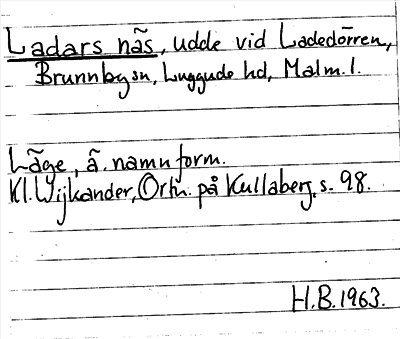 Ladars näs, udde vid Ladedörren,
Brunnby sn, Luggude hd, Malm. l.
Läge, ä. namnform.
Kl. Wijkander, Ortn. på Kullaberg, s. 98.
H.B. 1963.